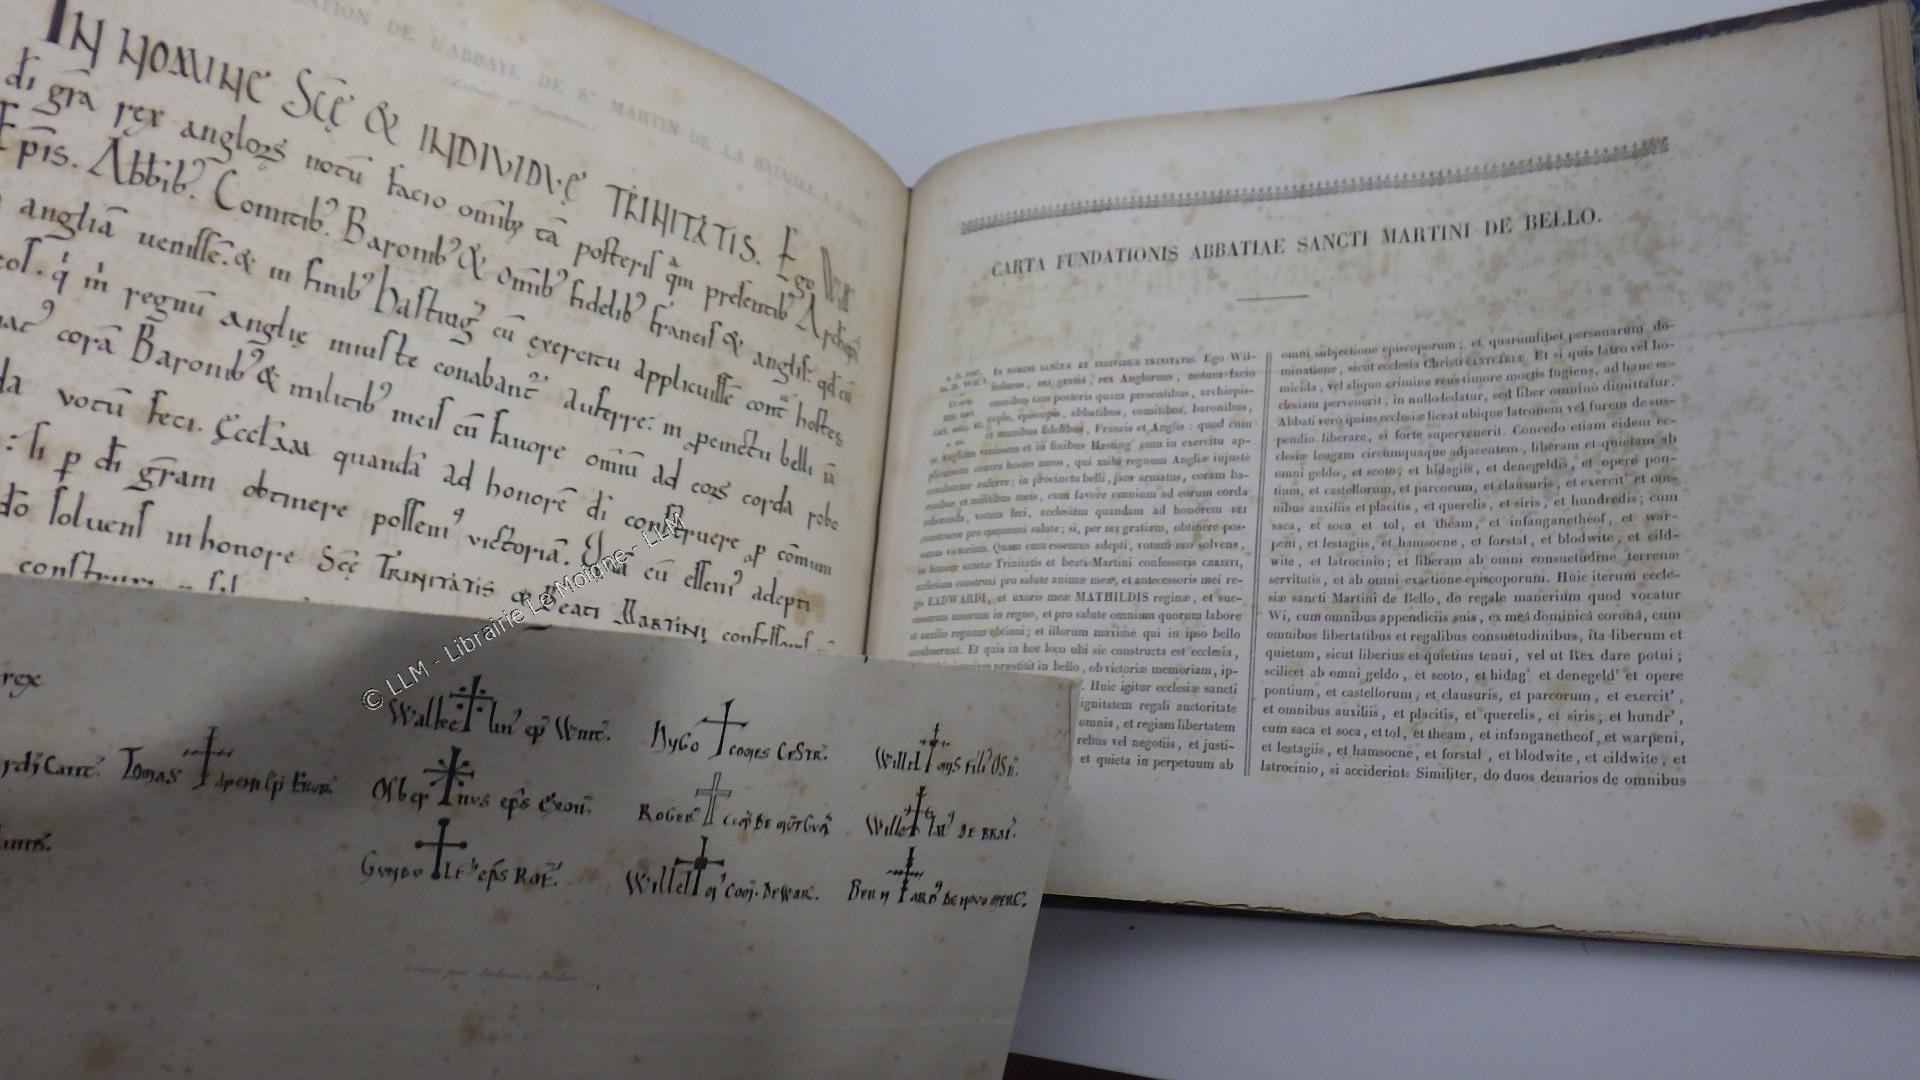 DATION DE L'ABBAYE DE St MARTIN DE LA BATAILLE
IN NOMINE SCĘ & INDIVIDVĘ TRINITATIS. Ego Will
di grā rex anglorꝫ notū facio omībꝫ tā posteris q̄m presentibꝰ Archiepis
Epis. Abbibꝰ. Comitibꝰ. Baronibꝰ & omībꝰ fidelibꝰ francis & anglis: qd cū
angliā uenissē. & in finibꝰ hastingꝰ cū exercitu applicuissē cont hostes
q̇ m̄ regnū anglię iniuste conabantꝰ auferre: in peinctu belli iā
corā Baronibꝰ & militibꝰ meis cū fauore omiū ad eorꝫ corda robo
da votū feci. Ęccl̄am quandā ad honorē di construere p comuni
si p di grām obtinere possemꝰ victoriā. Quā cū essemꝰ adepti
do soluens in honore Scę TRINITATIS & Beati MARTINI confessoris
rex
Walkelinꝰ ep̄ Wint.
HUGO COMES CESTR.
Willelmus FILIꝰ OSB.
Cant. Tomas
Osbernus ep̄s exon.
ROGERꝰ
Willelmꝰ DE BRAI.
Gundulfꝰ ep̄s Rof.
Willelmꝰ Com. DEWAR.
BERNARDꝰ DE NOVO MERC.
© LLM - Librairie Le Moigne - LLM
CARTA FUNDATIONIS ABBATIAE SANCTI MARTINI DE BELLO.
IN NOMINE SANCTÆ ET INDIVIDUÆ TRINITATIS. Ego Wil-
lielmus, DEI gratia, rex Anglorum, notum facio
omnibus tam posteris quam presentibus, archiepis-
copis, episcopis, abbatibus, comitibus, baronibus,
et omnibus fidelibus, Francis et Anglis: quod cum
in Angliam venissem et in finibus Hasting' cum in exercitu ap-
plicuissem contra hostes meos, qui mihi regnum Angliæ injustè
conabantur auferre; in procinctu belli, jam armatus, coram ba-
ronibus et militibus meis, cum favore omnium ad eorum corda
roboranda, votum feci, ecclesiam quandam ad honorem DEI
construere pro communi salute; si, per DEI gratiam, obtinere pos-
semus victoriam. Quam cum essemus adepti, votum DEO solvens,
in honore sanctæ Trinitatis et beati Martini confessoris CHRISTI,
ecclesiam construxi pro salute animæ meæ, et antecessoris mei re-
gis EADWARDI, et uxoris meæ MATHILDIS reginæ, et suc-
cessorum meorum in regno, et pro salute omnium quorum labore
et auxilio regnum obtinui; et illorum maximè qui in ipso bello
occubuerunt. Et quia in hoc loco ubi sic constructa est ecclesia,
præstitit in bello, ob victoriæ memoriam, ip-
. Huic igitur ecclesiæ sancti
dignitatem regali auctoritate
omnia, et regiam libertatem
rebus vel negotiis, et justi-
et quieta in perpetuum ab
omni subjectione episcoporum; et quarumlibet personarum do-
minatione, sicut ecclesia Christi CANTUARIÆ. Et si quis latro vel ho-
micida, vel aliquo crimine reus timore mortis fugiens, ad hanc ec-
clesiam pervenerit, in nullo ledatur, sed liber omninò dimittatur.
Abbati verò ipsius ecclesiæ liceat ubique latronem vel furem de sus-
pendio liberare, si forte supervenerit. Concedo etiam eidem ec-
clesiæ leugam circumquaque adjacentem, liberam et quietam ab
omni geldo, et scoto, et hidagiis, et denegeldis, et opere pon-
tium, et castellorum, et parcorum, et clausuris, et exercit' et om-
nibus auxiliis et placitis, et querelis, et siris, et hundredis; cum
saca, et soca et tol, et theam, et infanganetheof, et war-
peni, et lestagiis, et hamsocne, et forstal, et blodwite, et cild-
wite, et latrocinio; et liberam ab omni consuetudine terrenæ
servitutis, et ab omni exactione episcoporum. Huic iterum eccle-
siæ sancti Martini de Bello, do regale manerium quod vocatur
Wi, cum omnibus appendiciis suis, ex meâ dominicâ coronâ, cum
omnibus libertatibus et regalibus consuetudinibus, ita liberum et
quietum, sicut liberius et quietius tenui, vel ut Rex dare potui;
scilicet ab omni geldo, et scoto, et hidag' et denegeld' et opere
pontium, et castellorum, et clausuris, et parcorum, et exercit',
et omnibus auxiliis, et placitis, et querelis, et siris, et hundr',
cum saca et soca, et tol, et theam, et infanganetheof, et warpeni,
et lestagiis, et hamsocne, et forstal, et blodwite, et cildwite, et
latrocinio, si acciderint. Similiter, do duos denarios de omnibus